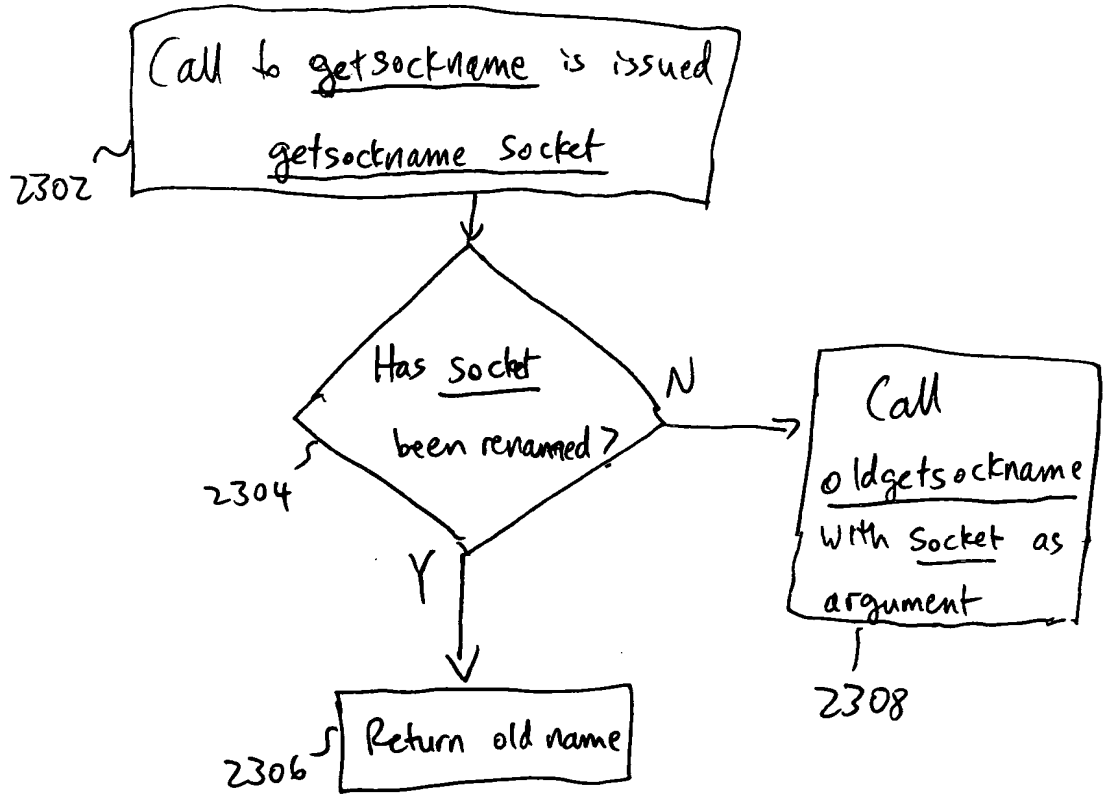 Call to getsockname is issued
getsockname socket
2302
Has socket
been renamed?
2304
N
Call
oldgetsockname
with socket as
argument
2308
Y
Return old name
2306